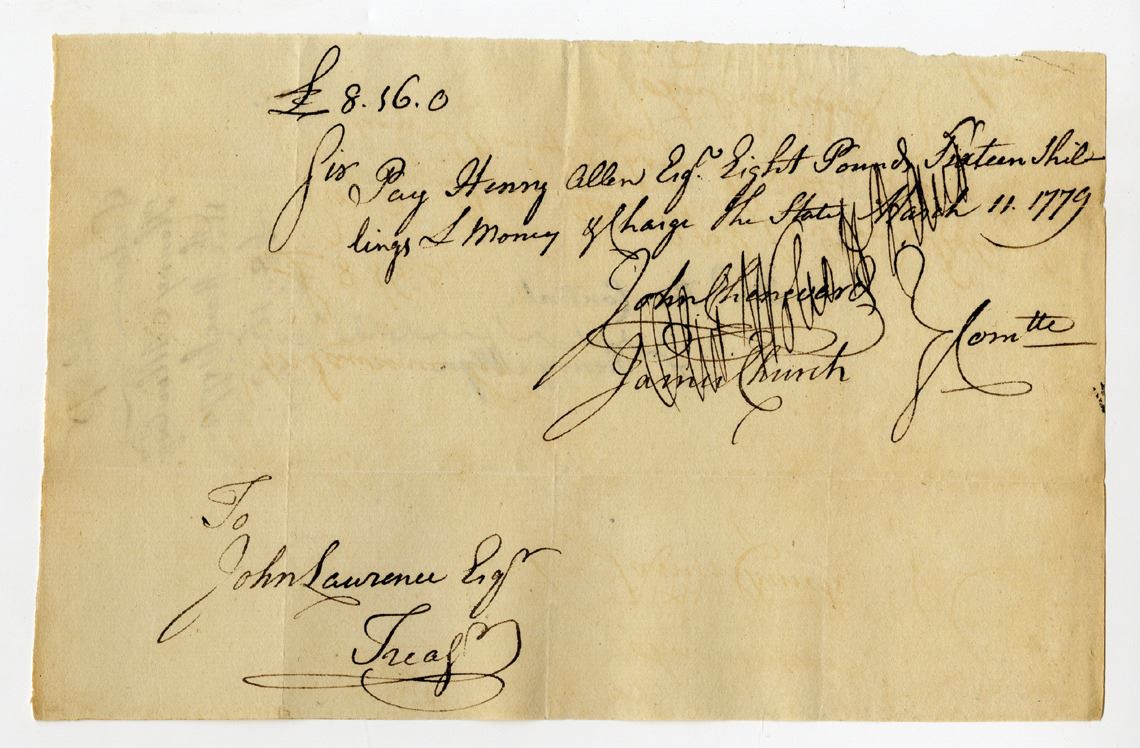 £ 8.16.0
Sir
Pay Henry Allen Esqr. Eight Pounds Sixteen Shil-
lings L Money & Charge the State March 11. 1779
John Chenevard
James Church
} Comtte
To
John Lawrence Esqr
Treasr